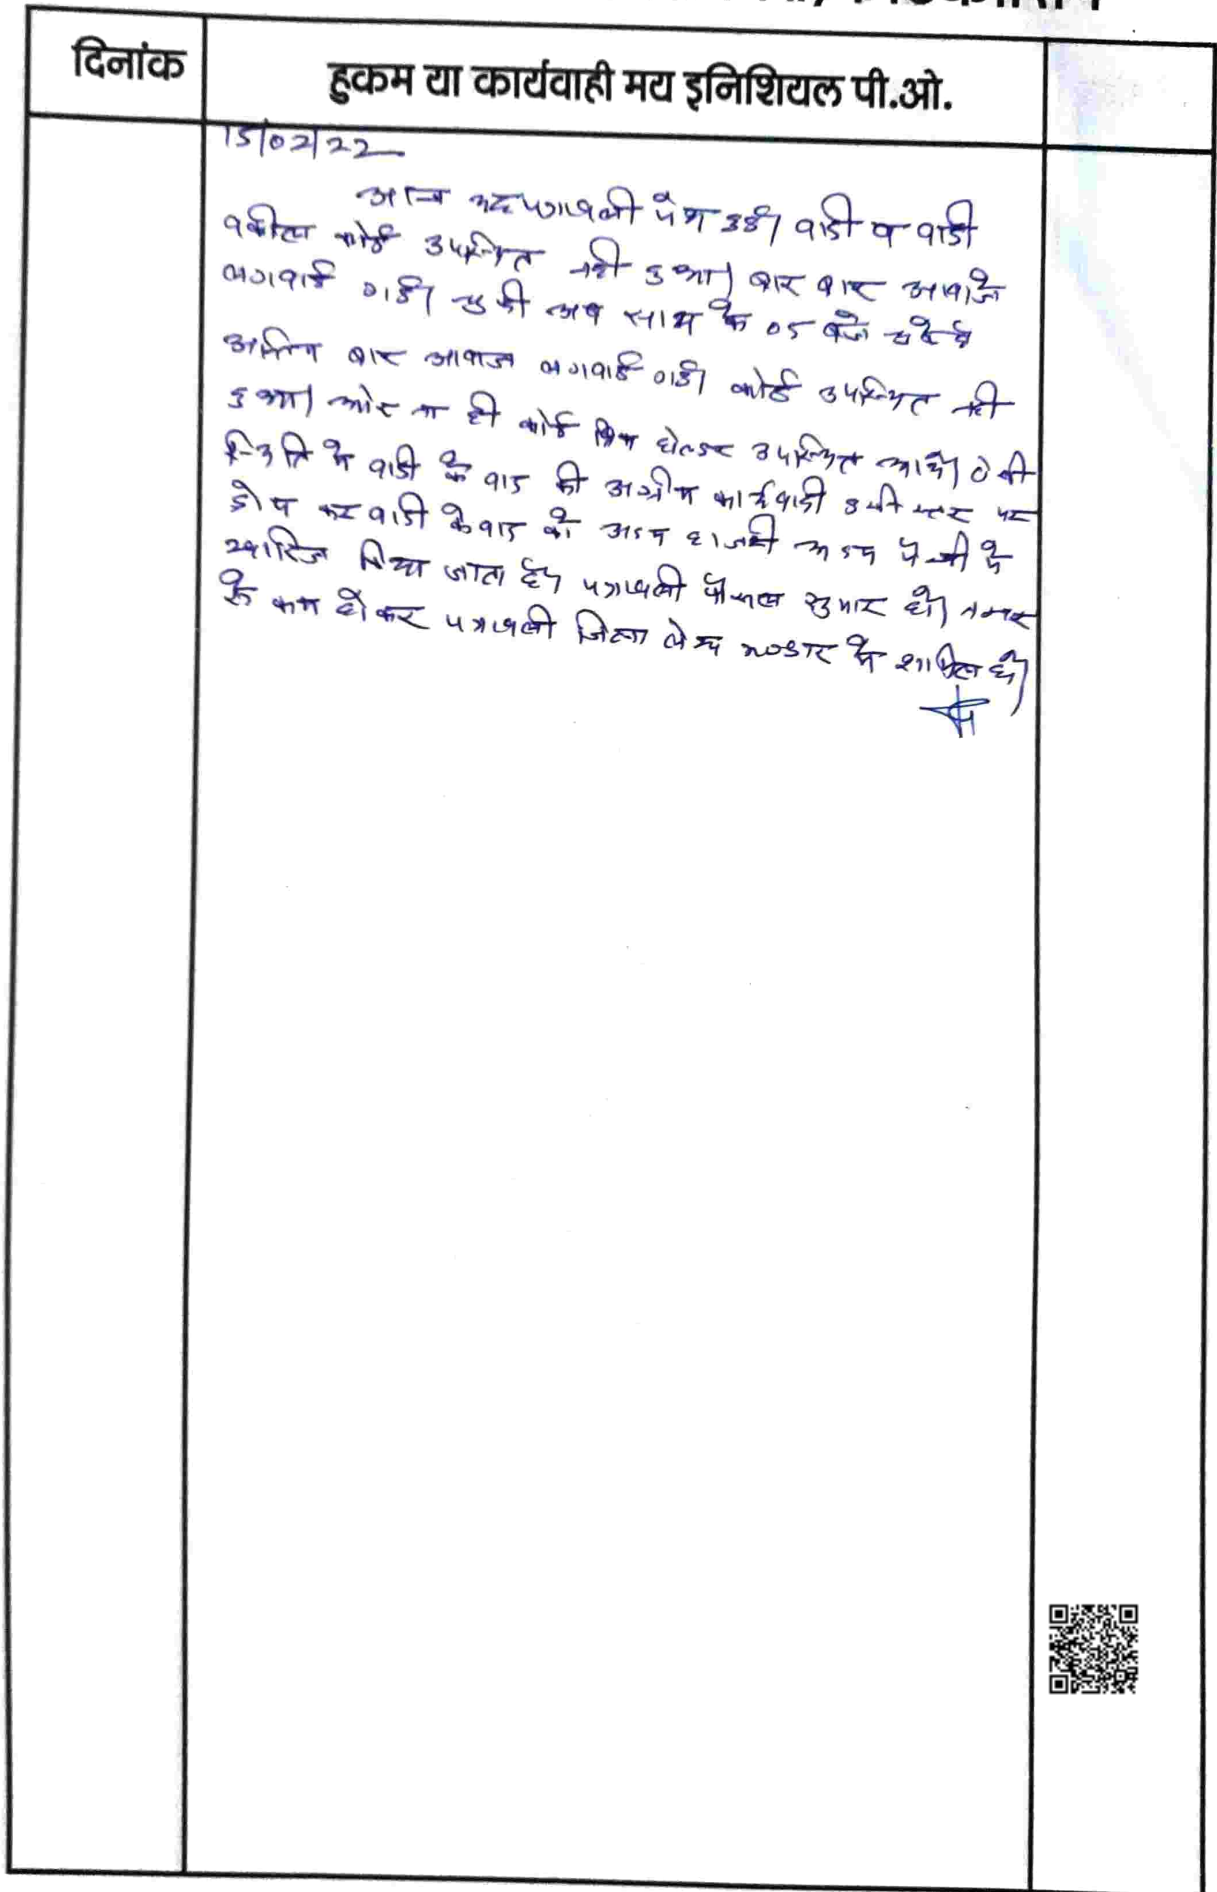 दिनांक
हुकम या कार्यवाही मय इनिशियल पी.ओ.
15/02/22
आज यह पत्रावली पेश हुई। वादी व वादी
वकील कोई उपस्थित नही हुआ। बार बार आवाजे
लगवाई गई। चुकी अब सायं के 05 बजे चुके है
अन्तिम बार आवाज लगवाई गई। कोई उपस्थित नही
हुआ। ओर ना ही कोई ब्रिफ होल्डर उपस्थित आये। ऐसी
स्थिति मे वादी के वाद की अग्रीम कार्यवाही इसी स्तर पर
ड्रोप कर वादी के वाद को अदम हाजरी अदम पेरवी मे
खारिज किया जाता है। पत्रावली फैसल सुमार हो। नम्बर
से कम होकर पत्रावली जिला लेख भण्डार मे शामिल हो।